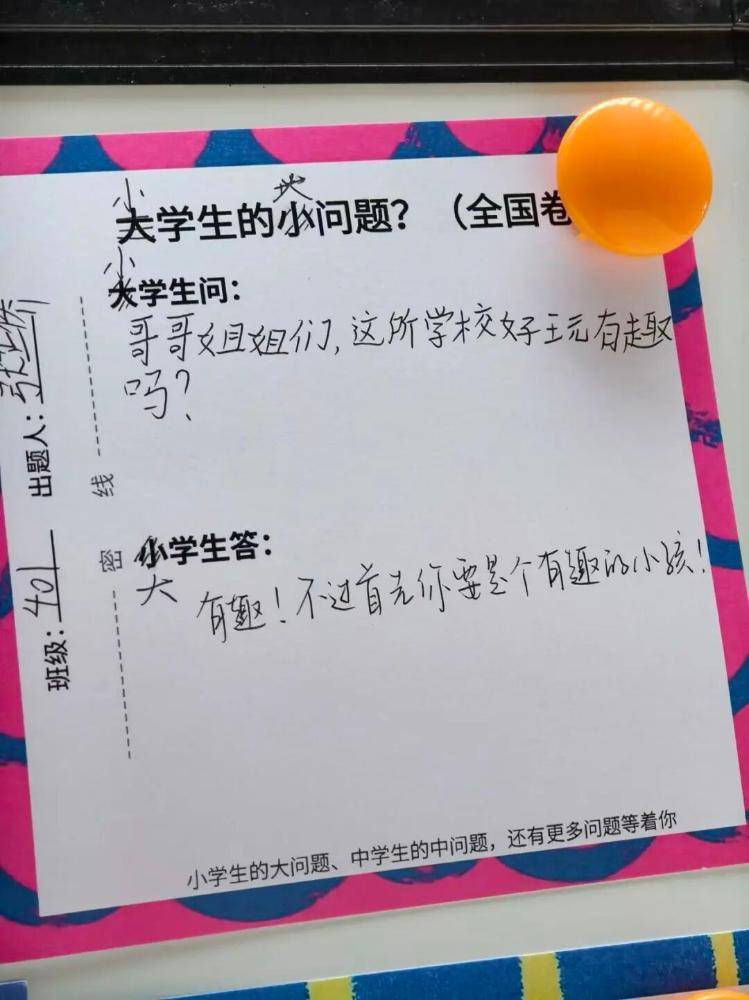 小
大学生的小问题？（全国卷
小
大学生问：
哥哥姐姐们,这所学校好玩有趣
吗?
小学生答：
大
有趣!不过首先你要是个有趣的小孩!
小学生的大问题、中学生的中问题，还有更多问题等着你
班级：401 出题人：
密 线